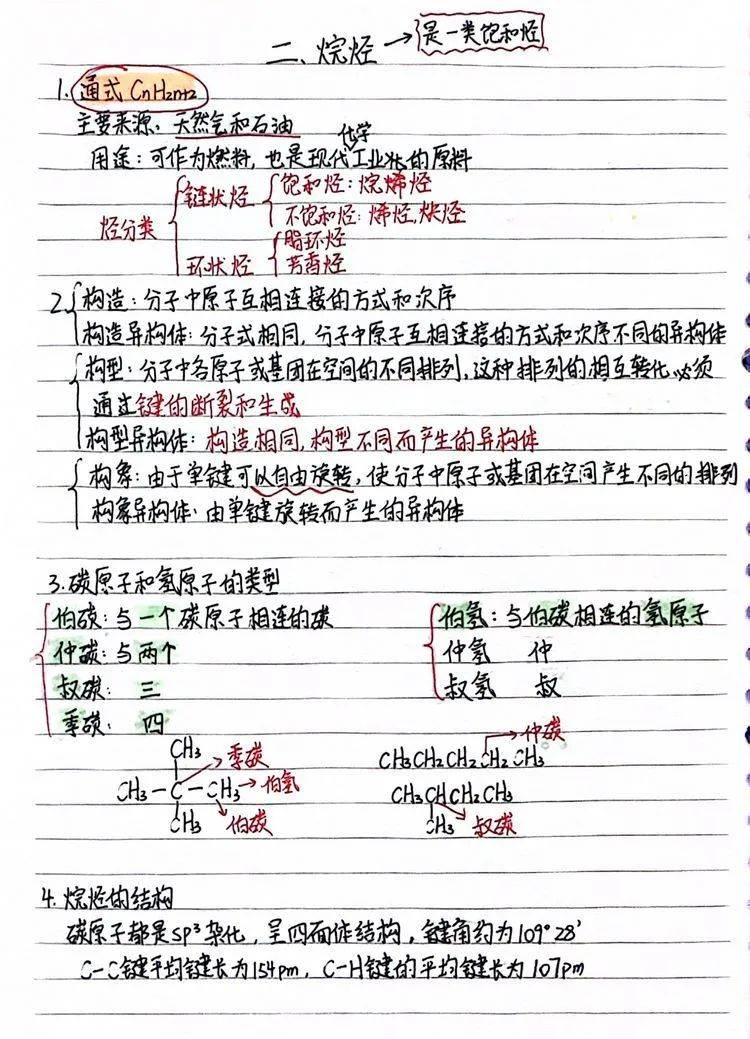 二、烷烃 → 是一类饱和烃
1. 通式 CnH2n+2
主要来源：天然气和石油
用途：可作为燃料，也是现代化学工业的原料
烃分类
链状烃
饱和烃：烷烯烃
不饱和烃：烯烃，炔烃
环状烃
脂环烃
芳香烃
2 构造：分子中原子互相连接的方式和次序
构造异构体：分子式相同，分子中原子互相连接的方式和次序不同的异构体
构型：分子中各原子或基团在空间的不同排列，这种排列的相互转化必须
通过键的断裂和生成
构型异构体：构造相同，构型不同而产生的异构体
构象：由于单键可以自由旋转，使分子中原子或基团在空间产生不同的排列
构象异构体：由单键旋转而产生的异构体
3. 碳原子和氢原子的类型
伯碳：与一个碳原子相连的碳
仲碳：与两个
叔碳： 三
季碳： 四
伯氢：与伯碳相连的氢原子
仲氢 仲
叔氢 叔
CH3 → 季碳
CH3-C-CH3 → 伯氢
CH3 伯碳
仲碳
CH3CH2CH2CH2CH3
CH3CHCH2CH3
CH3 叔碳
4. 烷烃的结构
碳原子都是sp³杂化，呈四面体结构，键角约为109°28′
C-C键平均键长为154pm，C-H键的平均键长为107pm